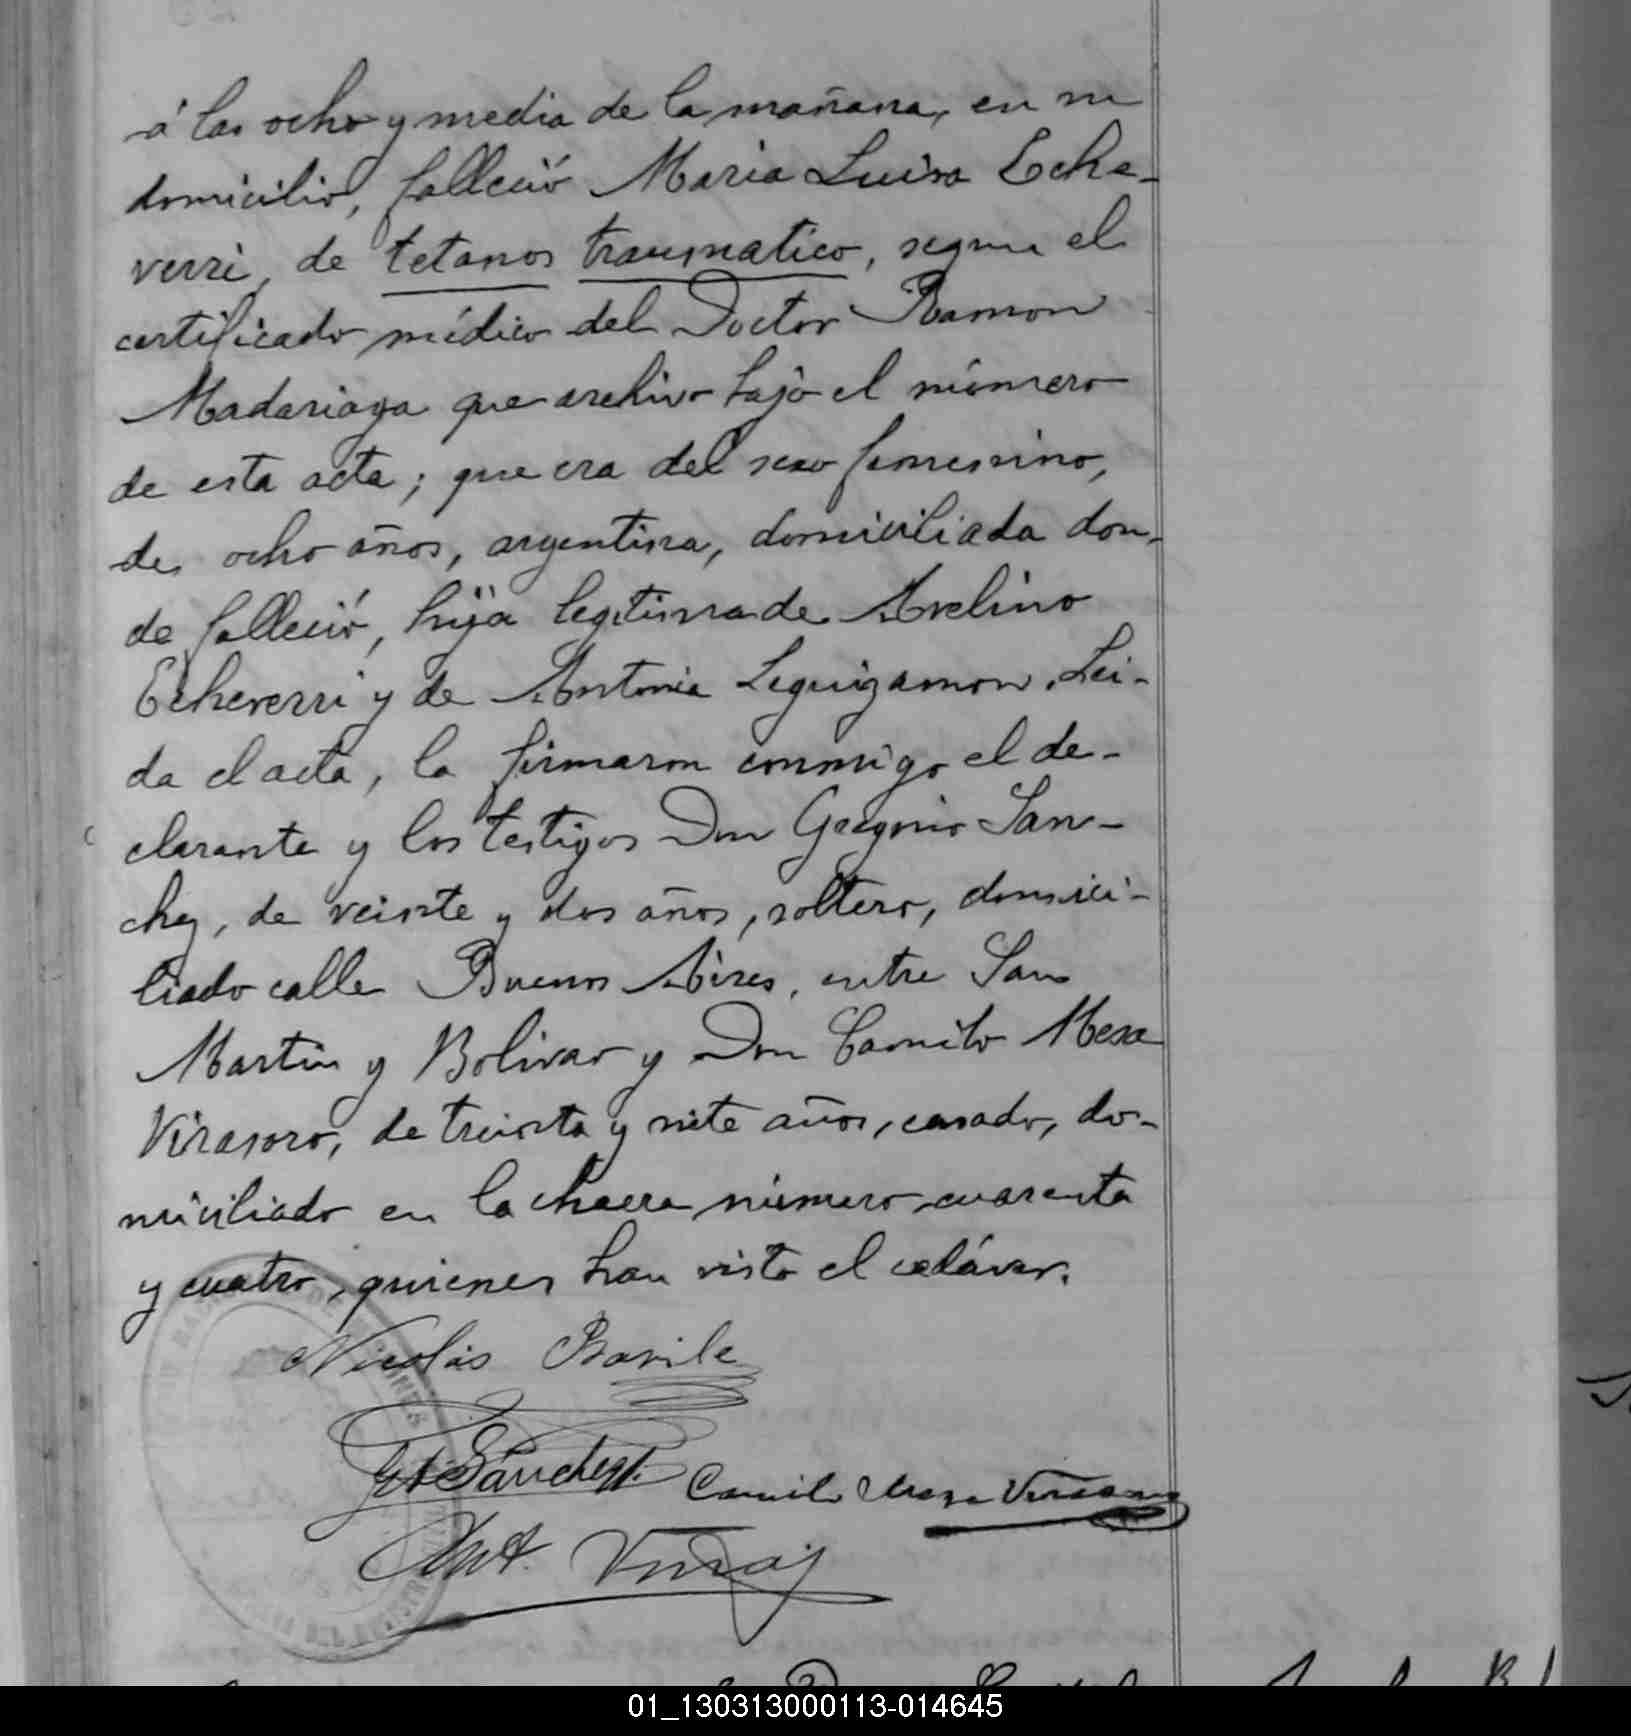 á las ocho y media de la mañana, en su
domicilio, falleció Maria Luisa Eche-
verri, de tetanos traumatico, segun el
certificado médico del Doctor Ramon
Madariaga que archivo bajo el número
de esta acta; que era del sexo femenino,
de ocho años, argentina, domiciliada don-
de falleció, hija legitima de Avelino
Echeverri y de Antonia Leguizamon. Lei-
da el acta, la firmaron conmigo el de-
clarante y los testigos Don Gregorio San-
chez, de veinte y dos años, soltero, domici-
liado calle Buenos Aires, entre San
Martin y Bolivar y Don Camilo Mesa
Virasoro, de treinta y siete años, casado, do-
miciliado en la chacra número cuarenta
y cuatro, quienes han visto el cadáver.
Nicolás Barile
Sánchez
Camilo Mesa Virasoro
01_130313000113-014645